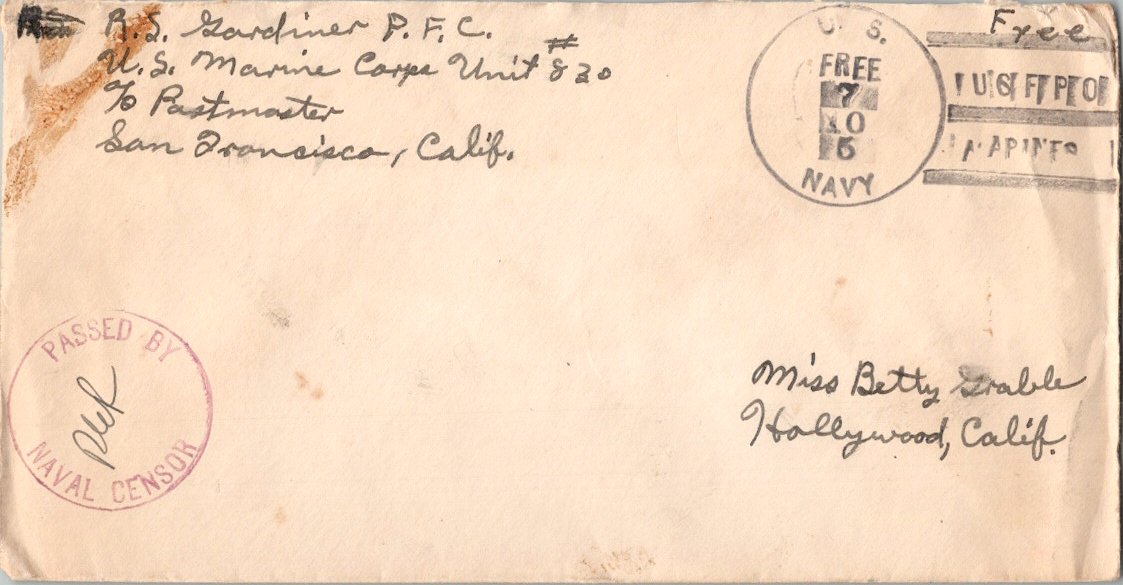 R.S. Gardiner P.F.C.
U.S. Marine Corps Unit #820
c/o Postmaster
San Francisco, Calif.
U. S.
FREE
7
10
5
NAVY
Free
PASSED BY
NAVAL CENSOR
Miss Betty Grable
Hollywood, Calif.